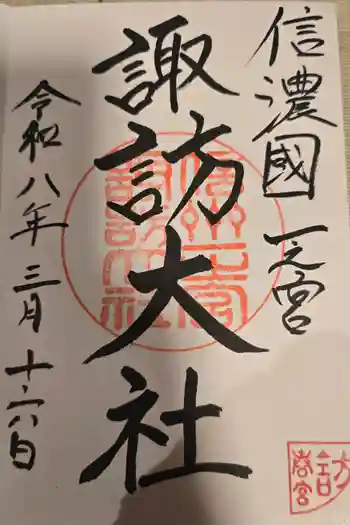 信濃國一之宮
諏訪大社
令和八年三月十六日